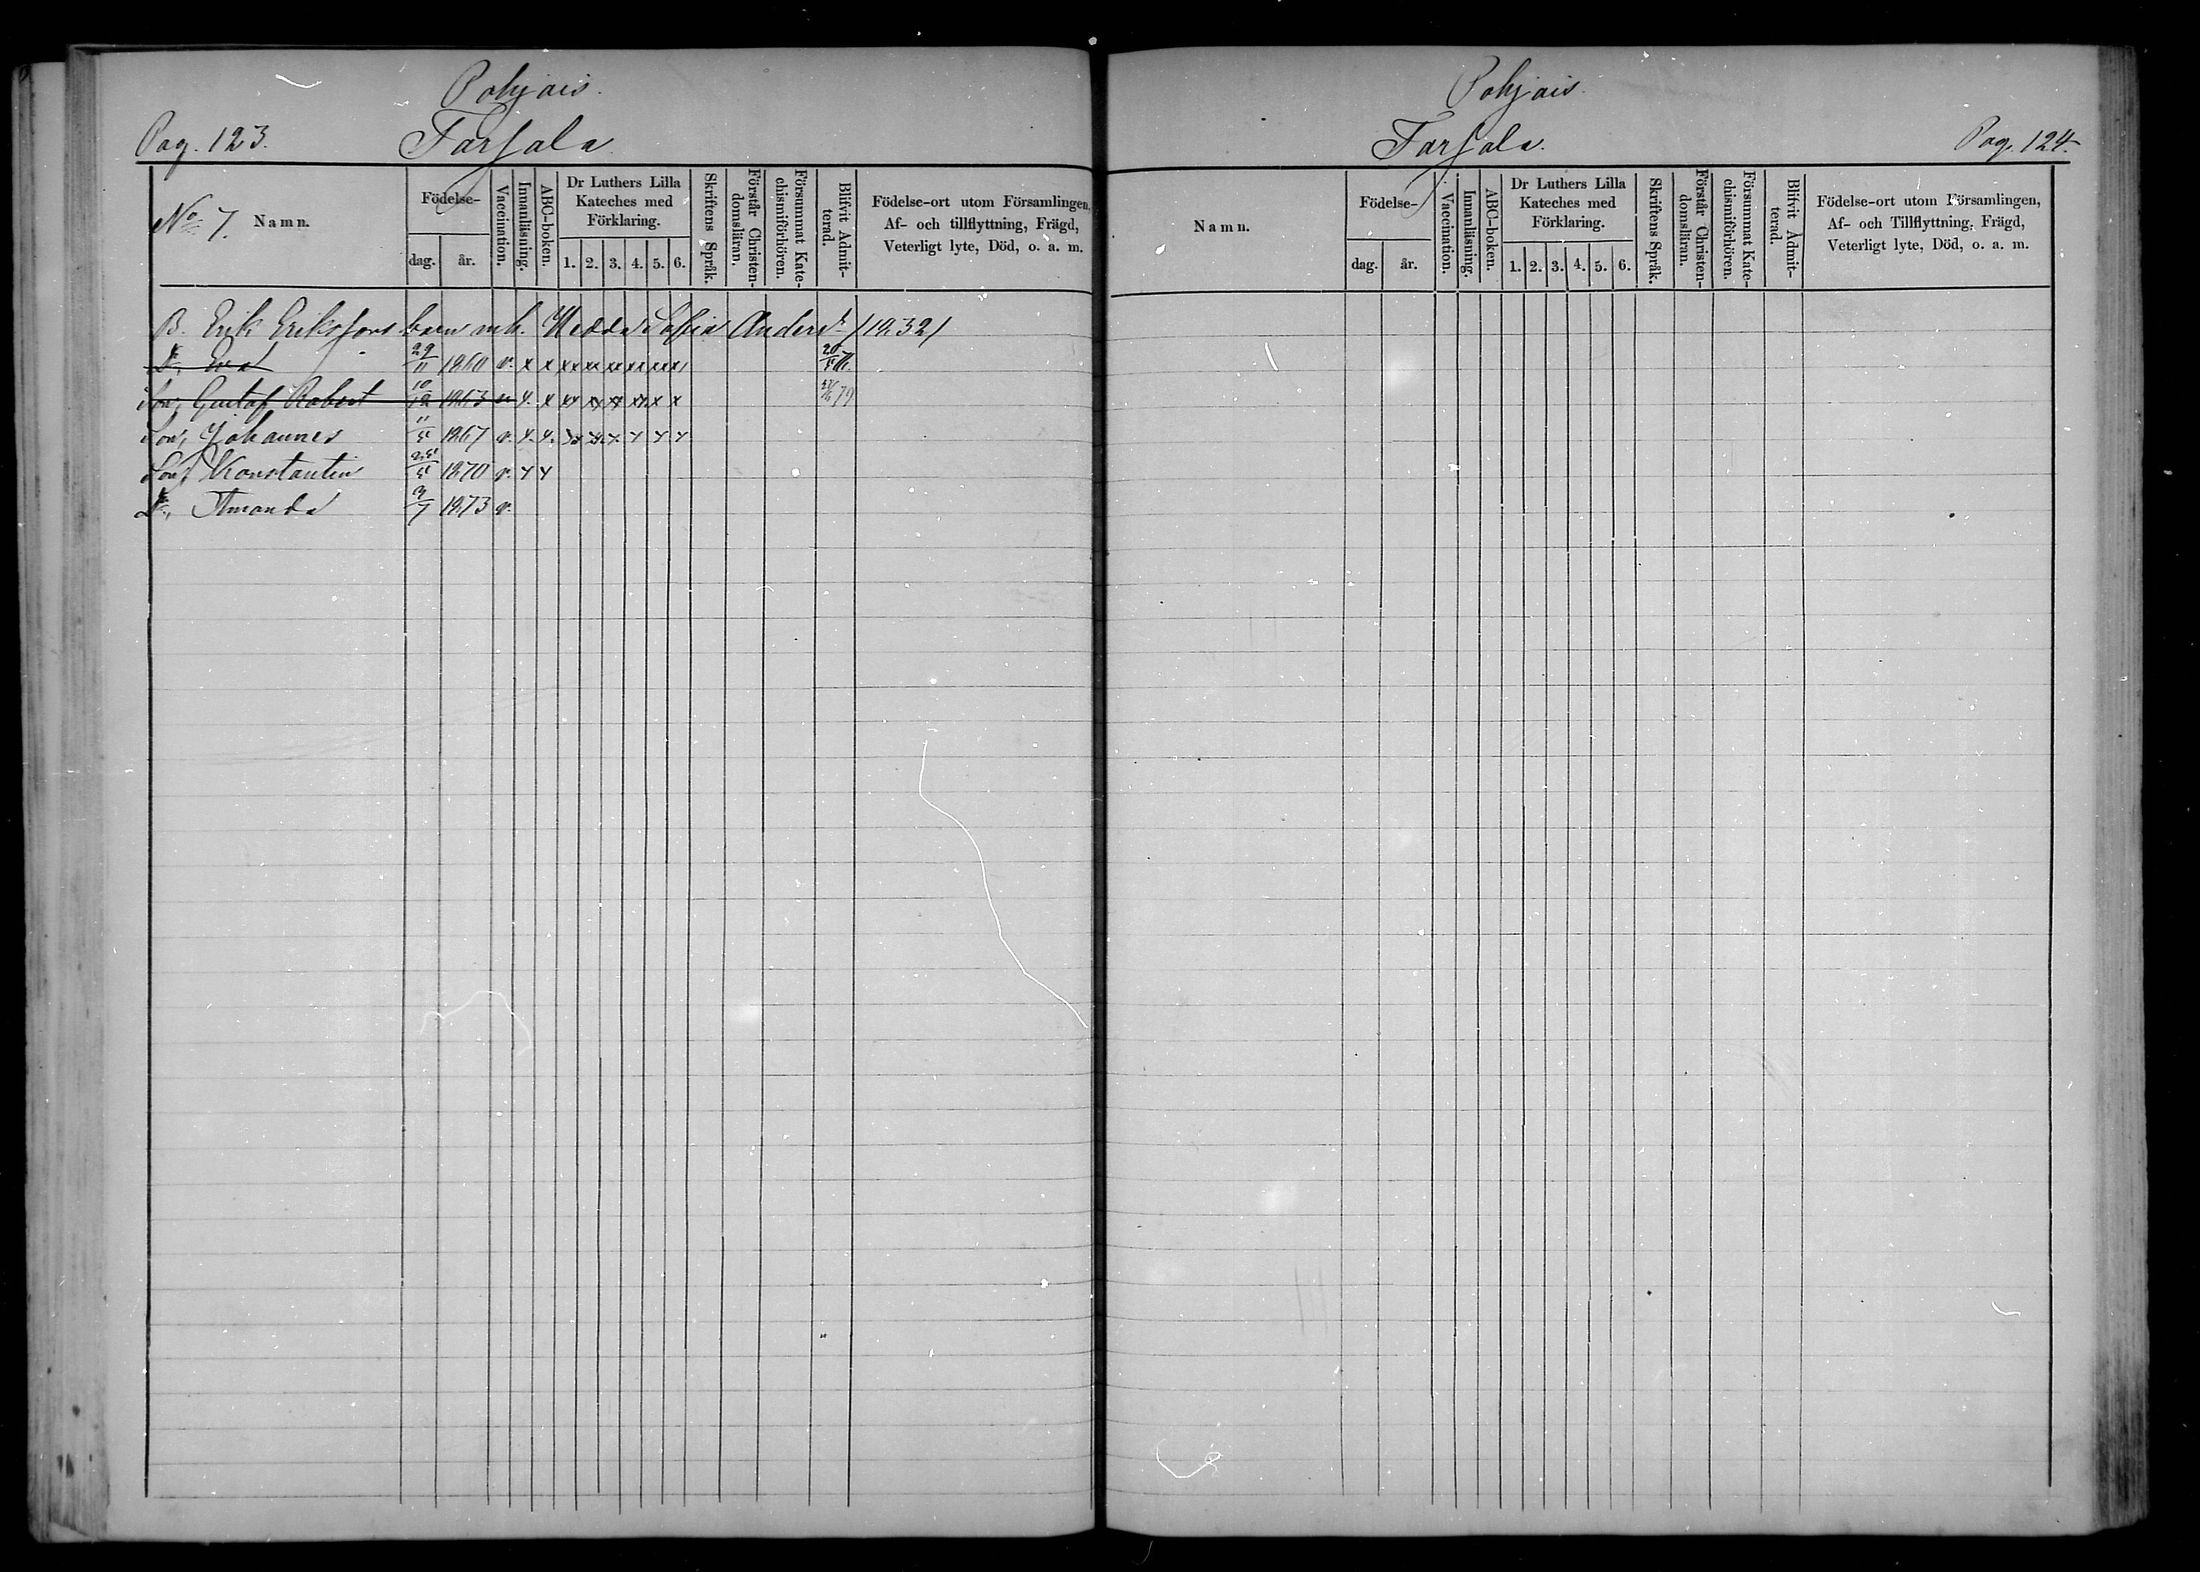 Pohjois.
Pag. 123. Tarsala
No 7. Namn.
Födelse-
dag. år.
Vaccination.
Innanläsning.
ABC-boken.
Dr Luthers Lilla
Kateches med
Förklaring.
1. 2. 3. 4. 5. 6.
Skriftens Språk.
Förstår Christen-
domsläran.
Försummat Kate-
chismiförhören.
Blifvit Admit-
terad.
Födelse-ort utom Församlingen,
Af- och tillflyttning, Frägd,
Veterligt lyte, Död, o. a. m.
B. Erik Erikssons barn m h. Hedda Sofia Anders /1832/
Dr, Eva 29/11 1860 v. x x xx xx xx xx xx x
Son, Gustaf Robert 10/12 1863 v. x x xx xx xx xx x x 79
Son, Johannes 11/5 1867 v. x. x. x x x x x x
Son, Konstantin 25/5 1870 v. x x
Dr, Amanda 3/7 1873 v.
Pohjois.
Tarsala. Pag. 124.
Namn.
Födelse-
dag. år.
Vaccination.
Innanläsning.
ABC-boken.
Dr Luthers Lilla
Kateches med
Förklaring.
1. 2. 3. 4. 5. 6.
Skriftens Språk.
Förstår Christen-
domsläran.
Försummat Kate-
chismiförhören.
Blifvit Admit-
terad.
Födelse-ort utom Församlingen,
Af- och Tillflyttning, Frägd,
Veterligt lyte, Död, o. a. m.